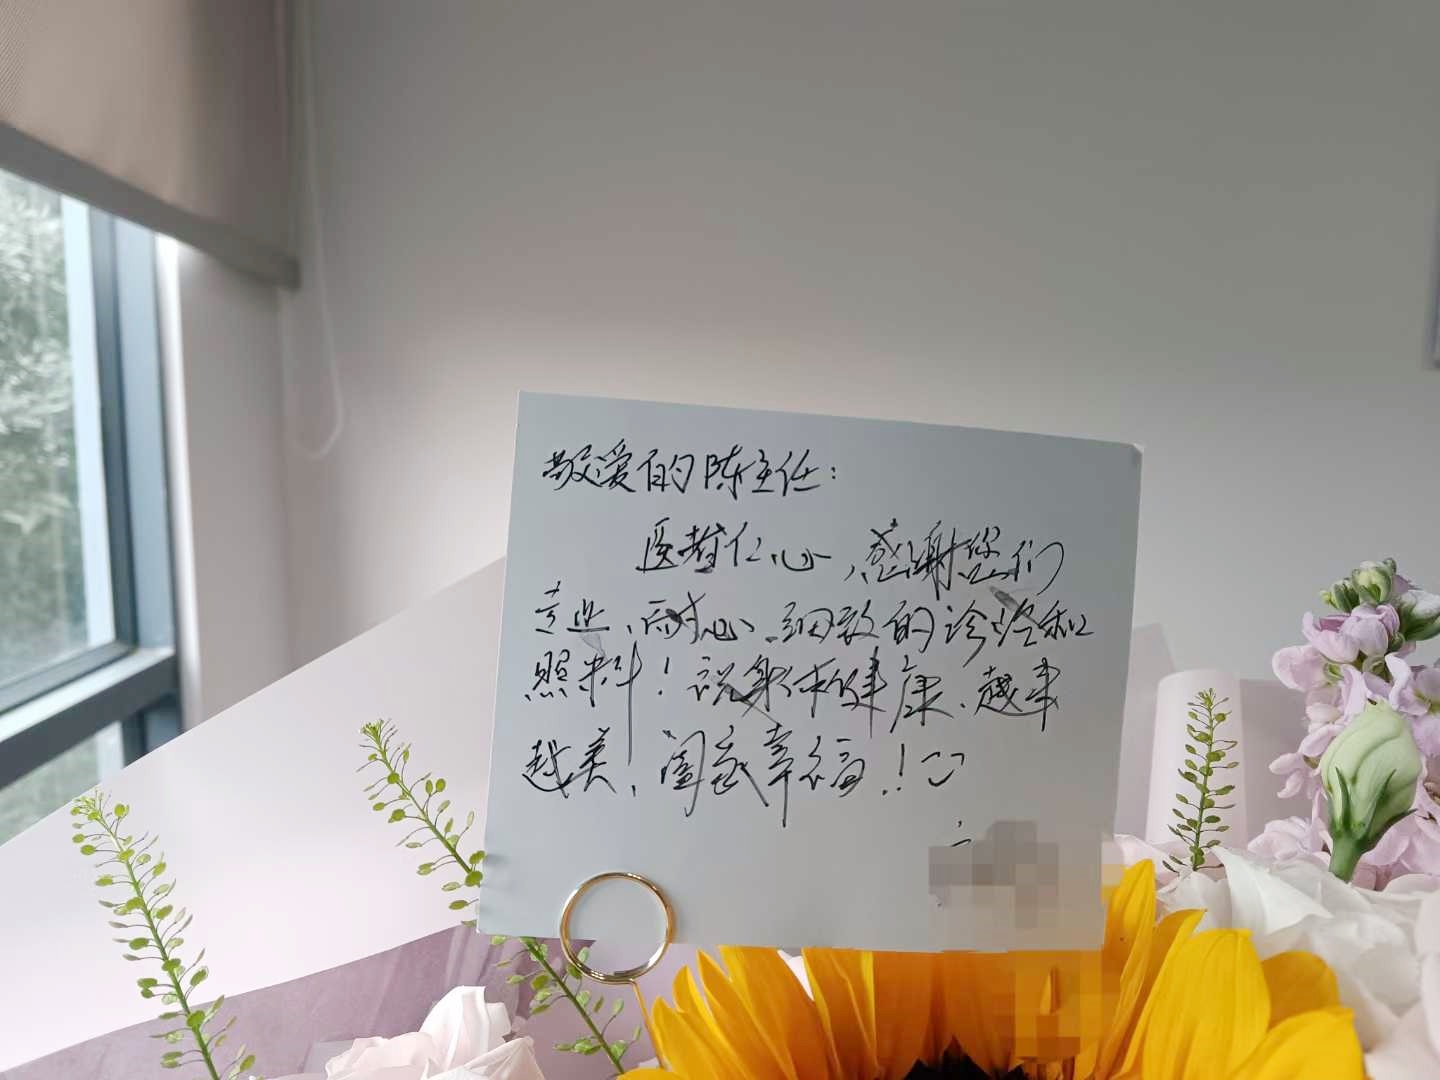 敬爱的陈主任：
医者仁心，感谢您们
专业、耐心、细致的诊治和
照料！祝身体健康、越来
越美，阖家幸福！